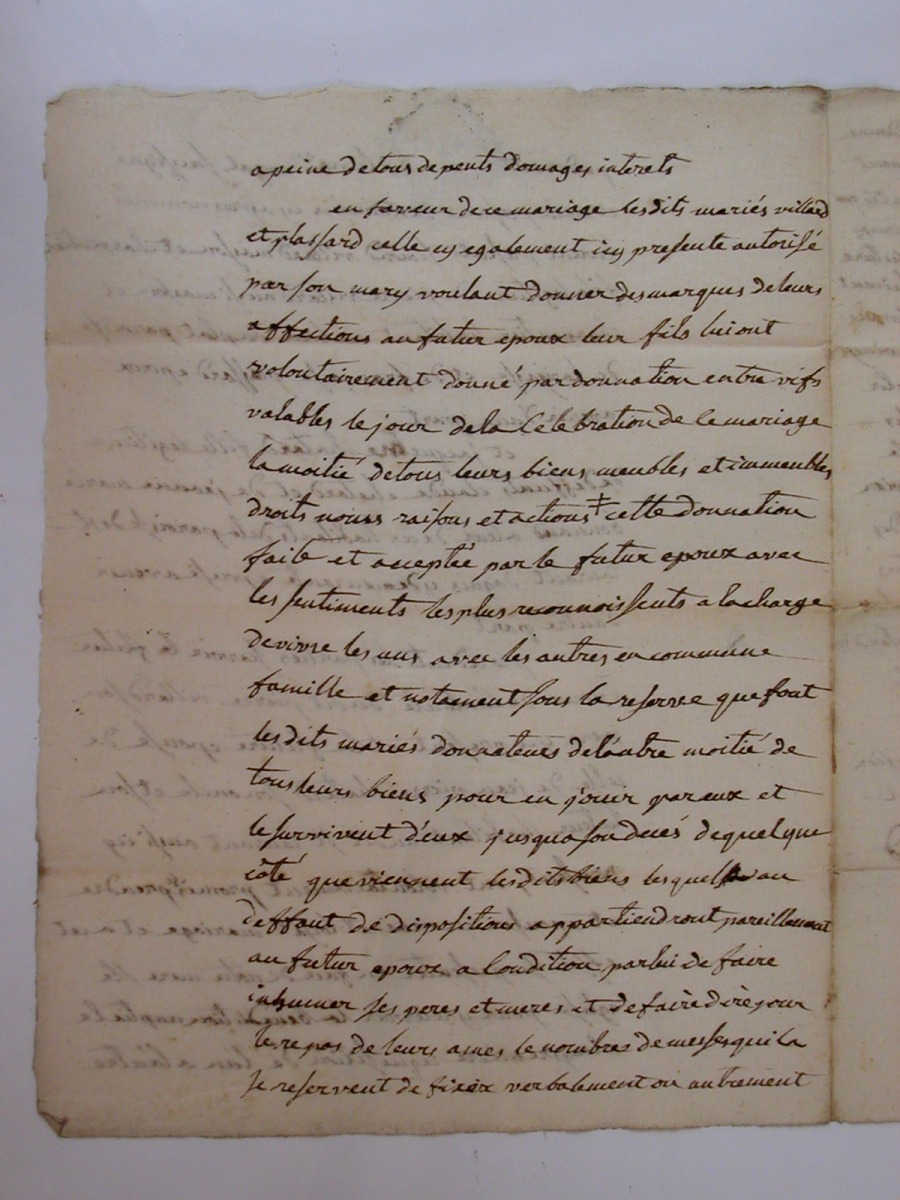 a peine de tous depents domages interets
en faveur de ce mariage les dits mariés villard
et plassard celle cy egalement icy presente autorisé
par son mary voulant donner des marques de leurs
affections au futur epoux leur fils lui ont
volontairement donné par donnation entre vifs
valables le jour de la Celebration de ce mariage
la moitié de tous leurs biens meubles et immeubles
droits noms raisons et actions ‡ cette donnation
faite et acceptée par le futur epoux avec
les sentiments les plus reconnoissents a la charge
de vivre les uns avec les autres en commune
famille et notament sous la reserve que font
les dits mariés donnateurs de l'autre moitié de
tous leurs biens pour en jouir par eux et
le survivent d'eux jusqua son decés de quelque
côté que viennent les dits biens lesquels au
deffaut de dispositions appartiendront pareillement
au futur epoux a Condition par lui de faire
inhumer ses peres et meres et de faire dire pour
le repos de leurs ames le nombres de messes qu'il
se reservent de fixer verbalement ou autrement